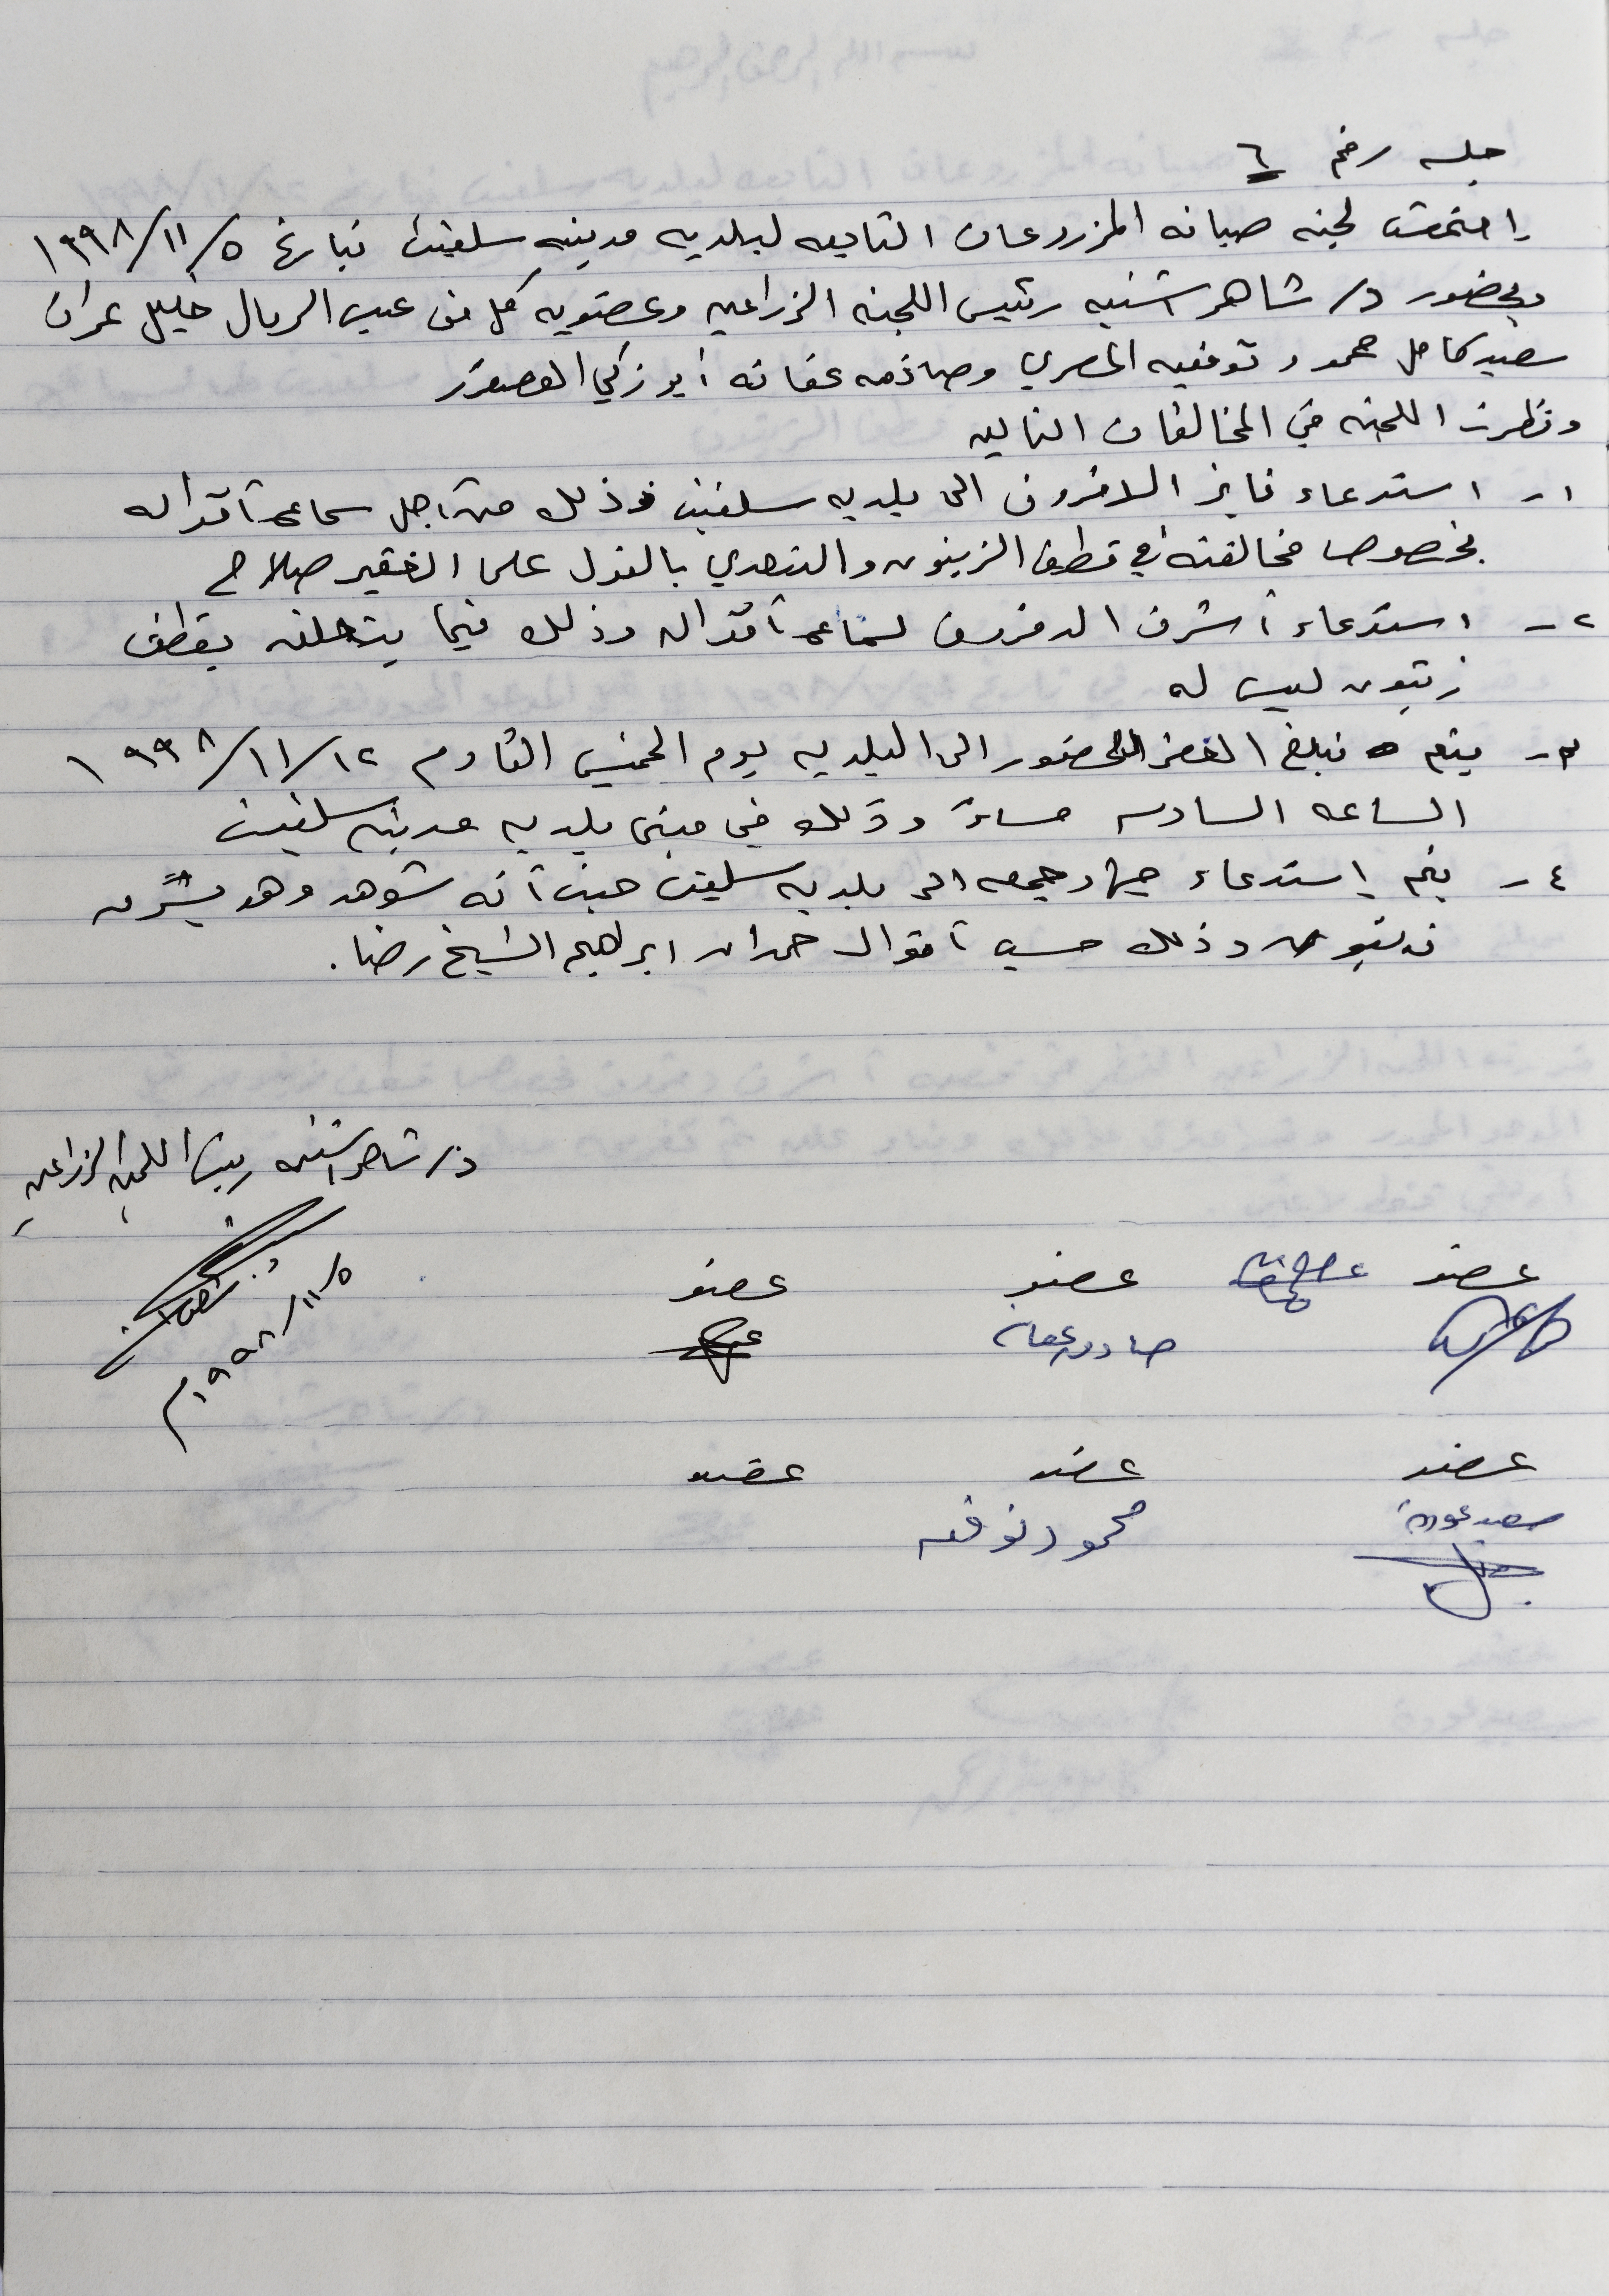 جلسه رقم ٦
إجتمعت لجنه صيانه المزروعات التابعه لبلديه مدينه سلفيت بتاريخ ١٩٩٨/١١/٥
وبحضور د/ شاهر اشتيه رئيس اللجنه الزراعيه وعضويه كل من عبد الرحال خليل عمران
سعيد كامل محمود توفيق المصري وصادق عفانه أبو زكي
ونظرت اللجنه في المخالفات التاليه
١- استدعاء فايز الدقروق الى بلديه سلفيت وذلك من أجل سماع أقواله
بخصوص مخالفته في قطف الزيتون والتعدي بالقول على الخفير صلاح
٢- استدعاء أشرف الدقروق لسماع أقواله وذلك فيما يتعلق بقطف
زيتون ليس له
٣- يتم تبليغ الحضور الى البلديه يوم الخميس القادم ١٩٩٨/١١/١٢
الساعه السادسه مساءً وذلك في مبنى بلديه مدينه سلفيت
٤- يتم إستدعاء جهاد جمعه الى بلديه سلفيت حيث أنه شوهد وهو
زيتون وذلك حسب أقوال حمدان ابراهيم الشيخ رضا.
د/ شاهر اشتيه رئيس اللجنه الزراعيه
١٩٩٨/١١/٥م
عضو عضو عضو
صادق عفانه
عضو عضو عضو
سعيد عودة محمود توفيق